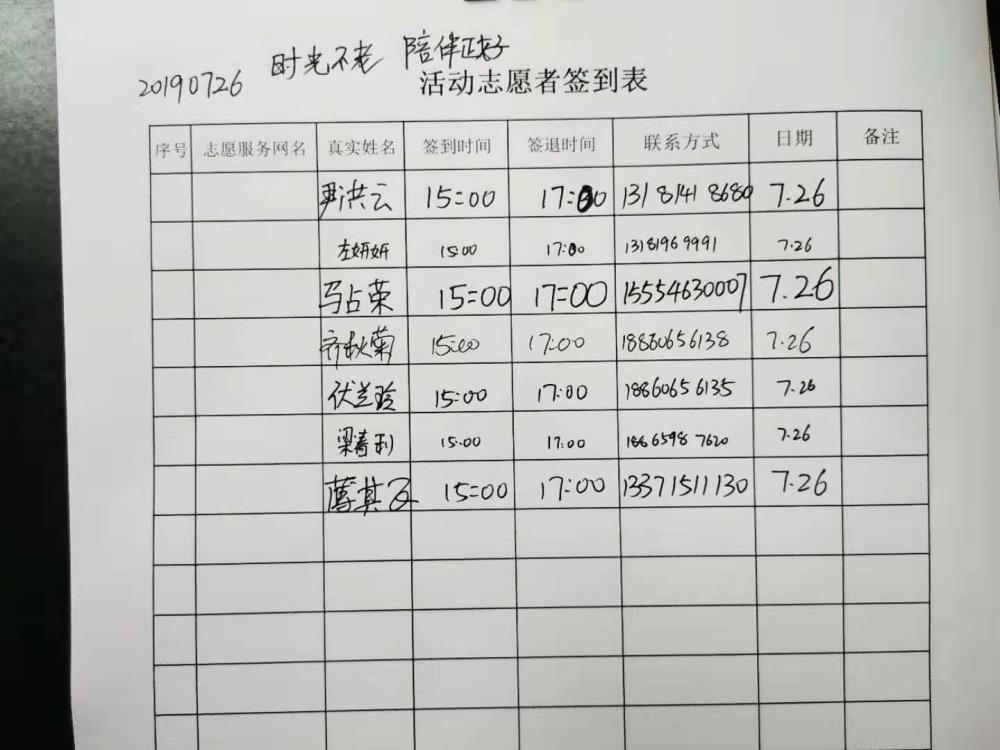 时光不老 陪伴正好
20190726 活动志愿者签到表
序号 志愿服务网名 真实姓名 签到时间 签退时间 联系方式 日期 备注
尹洪云 15:00 17:00 131 8141 8680 7.26
左妍妍 15:00 17:00 1318196 9991 7.26
马占荣 15:00 17:00 15554630007 7.26
齐秋菊 15:00 17:00 18860656138 7.26
伏兰玲 15:00 17:00 18860656135 7.26
梁春利 15:00 17:00 186 6598 7620 7.26
15:00 17:00 13371511130 7.26